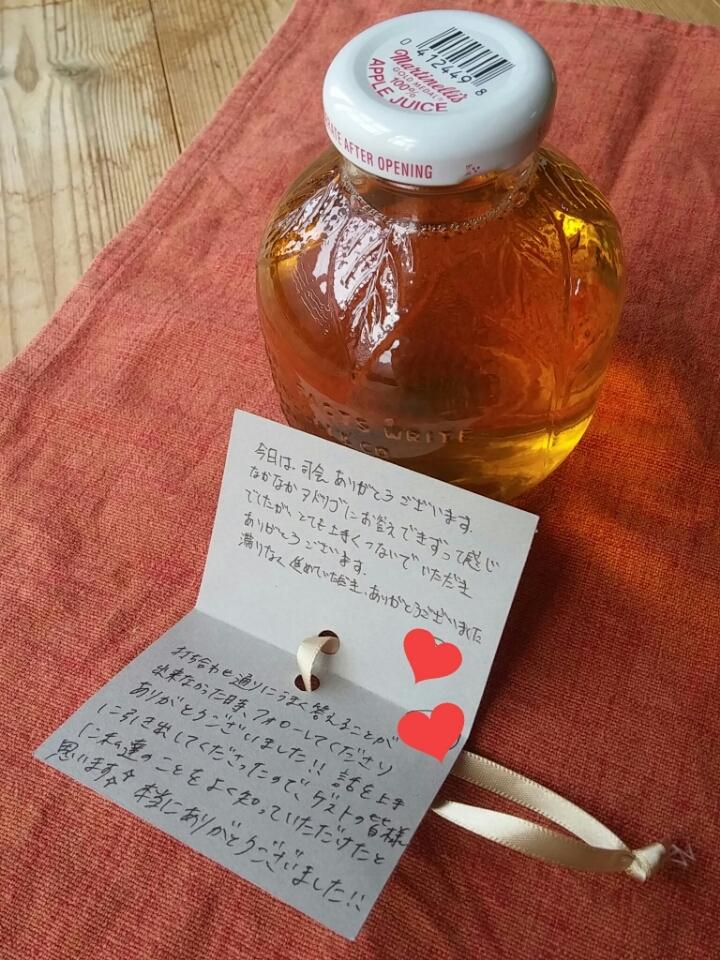 0 412449 8
Martinelli's
GOLD MEDAL
100%
APPLE JUICE
AFTER OPENING
WRITE
今日は、司会ありがとうございます。
なかなかアドリブにお答えできずって感じ
でしたが、とても上手くつないでいただき
ありがとうございます。
滞りなく進めていただき、ありがとうございました
打ち合わせ通りにうまく答えることが
出来なかった時、フォローしてくださり
ありがとうございました!! 話を上手
に引き出してくださったので、ゲストの皆様
に私達のことをよく知っていただけたと
思います☆ 本当にありがとうございました!!